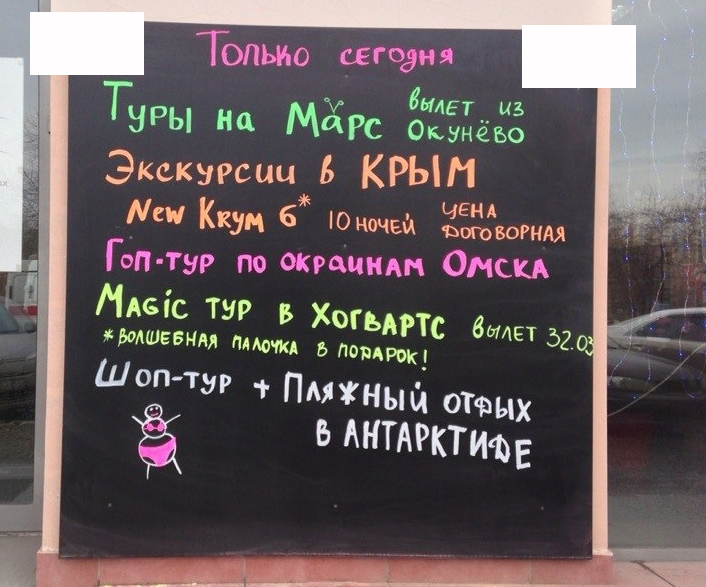 Только сегодня
Туры на Марс вылет из Окунёво
Экскурсии в Крым
New Krym 6* 10 ночей цена договорная
Гоп-тур по окраинам Омска
Magic тур в Хогвартс вылет 32.03
*волшебная палочка в подарок!
Шоп-тур + Пляжный отдых
в Антарктиде